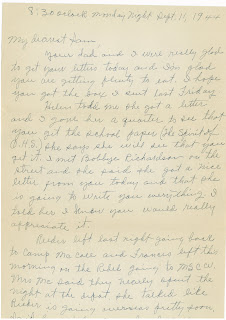 8:30 o'clock Monday Night Sept. 11, 1944
My Dearest Son
Your Dad and I were really glad
to get your letter today and I'm glad
you are getting plenty to eat. I hope
you got the box I sent last Friday
Helen told me she got a letter
and I gave her a quarter to see that
you get the school paper (The Spirit of
O.H.S.) She says she will see that you
get it. I met Bobbye Richardson on the
street and she said she got a nice
letter from you today and that she
is going to write you everything. I
told her I knew you would really
appreciate it.
left last night going back
to Camp McCain and Frances left this
morning on the Rebel going to M.S.C.W.
Mrs Mc said they nearly spent the
night at the depot she talked like
is going overseas pretty soon,